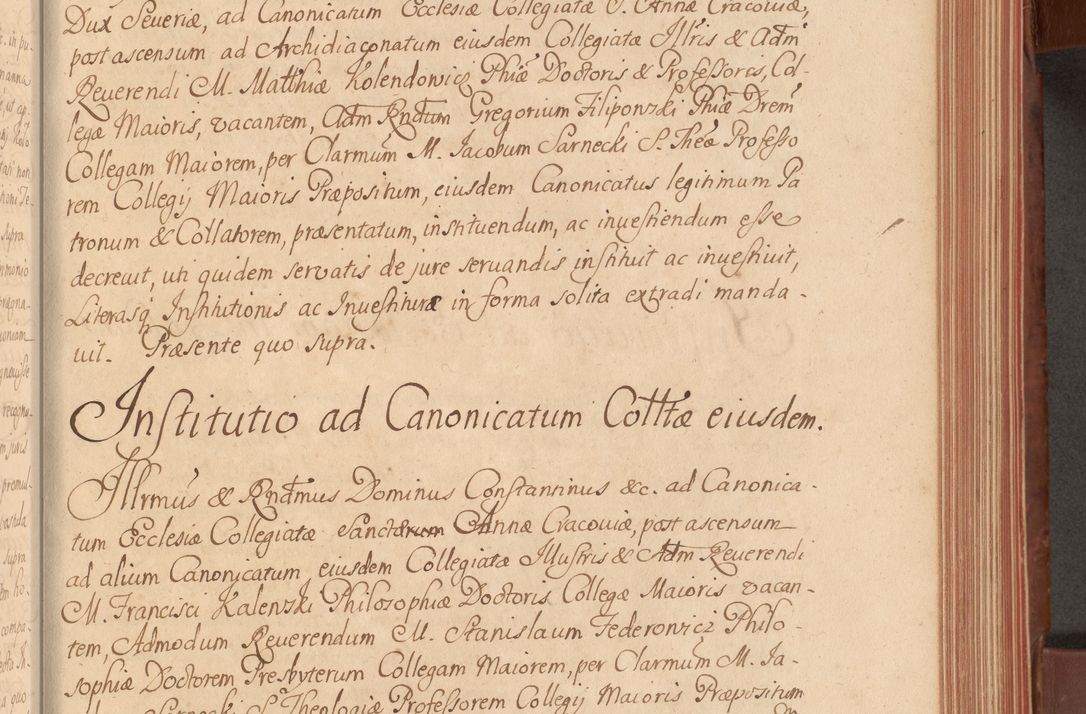 Dux Severiæ, ad Canonicatum Ecclesiæ Collegiatæ S. Annæ Cracoviæ,
post ascensum ad Archidiaconatum eiusdem Collegiatæ Jllris & Adm
Reuerendi M. Matthiæ Kolendowicz Phiæ Doctoris & Professoris, Col-
legæ Maioris, vacantem, Adm Rndum Gregorium Filiponzki Phiæ Drem
Collegam Maiorem, per Clarmum M. Jacobum Sarnecki S. Theæ Professo
rem Collegij Maioris Præpositum, eiusdem Canonicatus legitimum Pa
tronum & Collatorem, præsentatum, instituendum, ac inuestiendum esse
decreuit, uti quidem servatis de jure seruandis instituit ac inuestiuit,
Literasq Institutionis ac Inuestituræ in forma solita extradi manda-
uit. Præsente quo supra.
Institutio ad Canonicatum Colltæ eiusdem.
Jllrmus & Rndmus Dominus Constantinus &c. ad Canonica-
tum Ecclesiæ Collegiatæ Sanctærum Annæ Cracouiæ, post ascensum
ad alium Canonicatum eiusdem Collegiatæ Jllustris & Adm Reuerendi
M. Francisci Kalenzki Philosophiæ Doctoris Collegæ Maioris vacan-
tem, Admodum Reuerendum M. Stanislaum Federowicz Philo-
sophiæ Doctorem Presbyterum Collegam Maiorem, per Clarmum M. Ja-
Sarnecki S. Theologiæ Professorem Collegij Maioris Præpositum